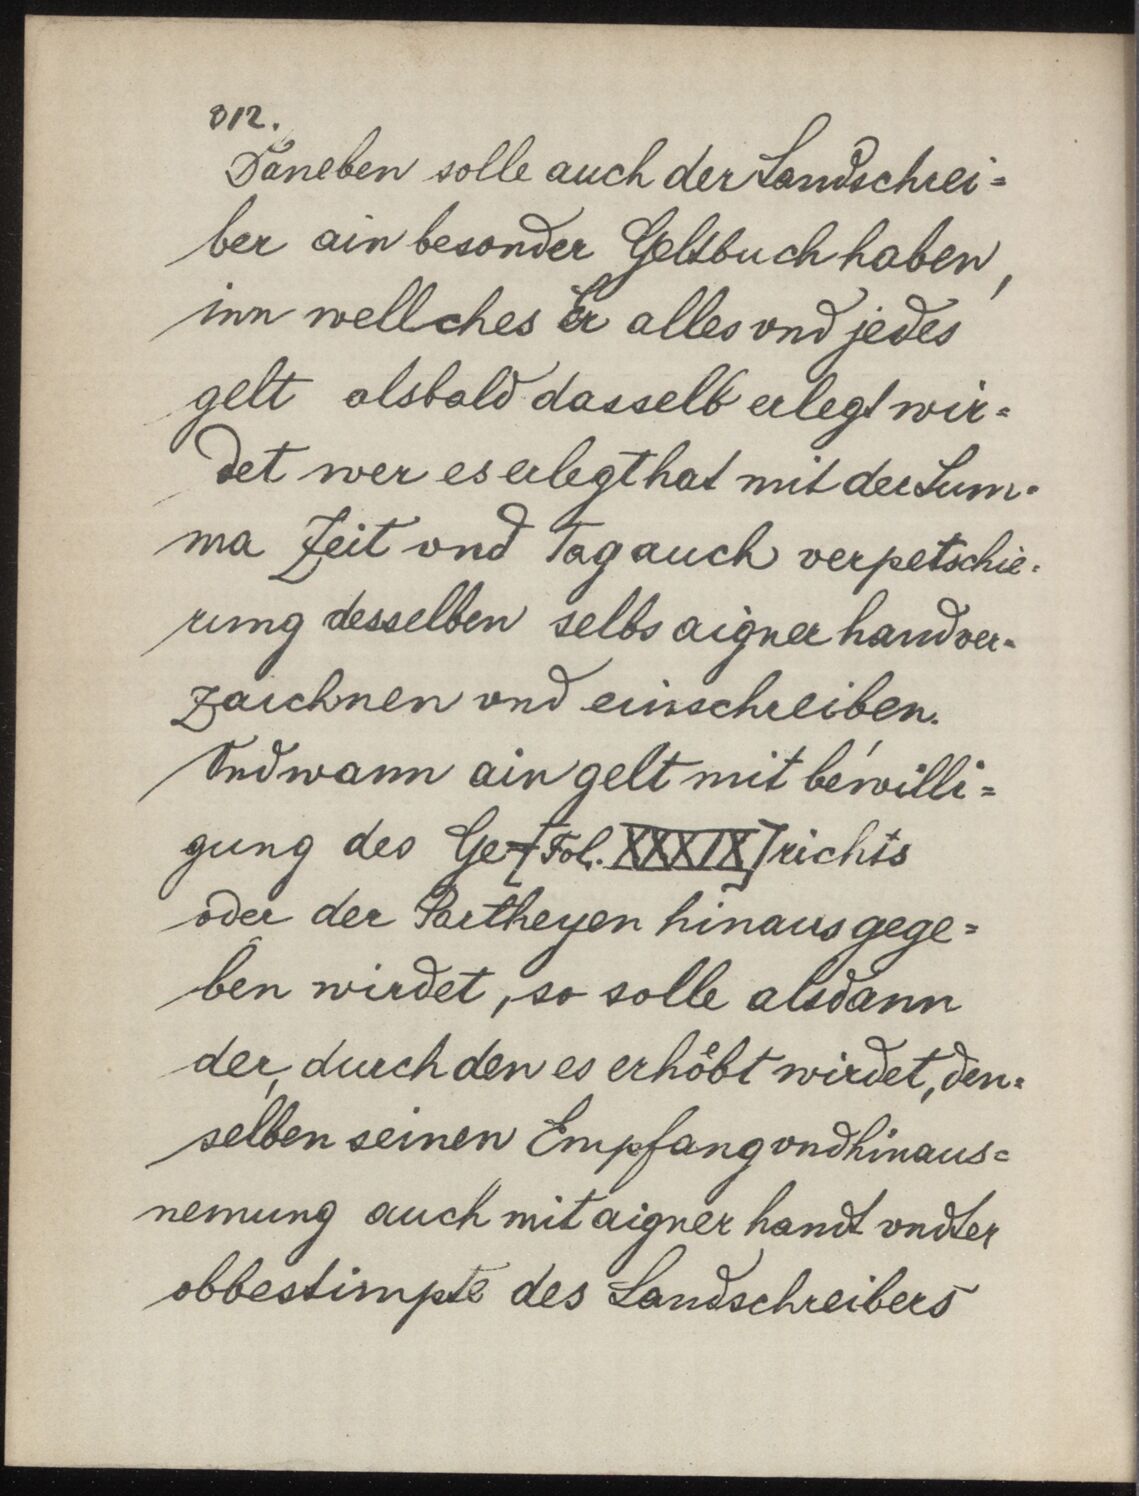 312.
Daneben solle auch der Landschrei=
ber ain besonder Geltbuch haben,
inn wellches Er alles vnd jedes
gelt alsbald dasselb erlegt wir=
det wer es erlegt hat mit der Sum=
ma Zeit vnd Tag auch verpetschie=
rung desselben selbs aigner hand ver=
zaichnen vnd einschreiben.
Vnd wann ain gelt mit bewilli=
gung des Ge-[Fol. XXXIX]richts
oder der Partheyen hinaus gege=
ben wirdet, so solle alsdann
der, durch den es erhöbt wirdet, den=
selben seinen Empfang vnd hinaus=
nemung auch mit aigner handt vndter
obbestimpte des Landschreibers